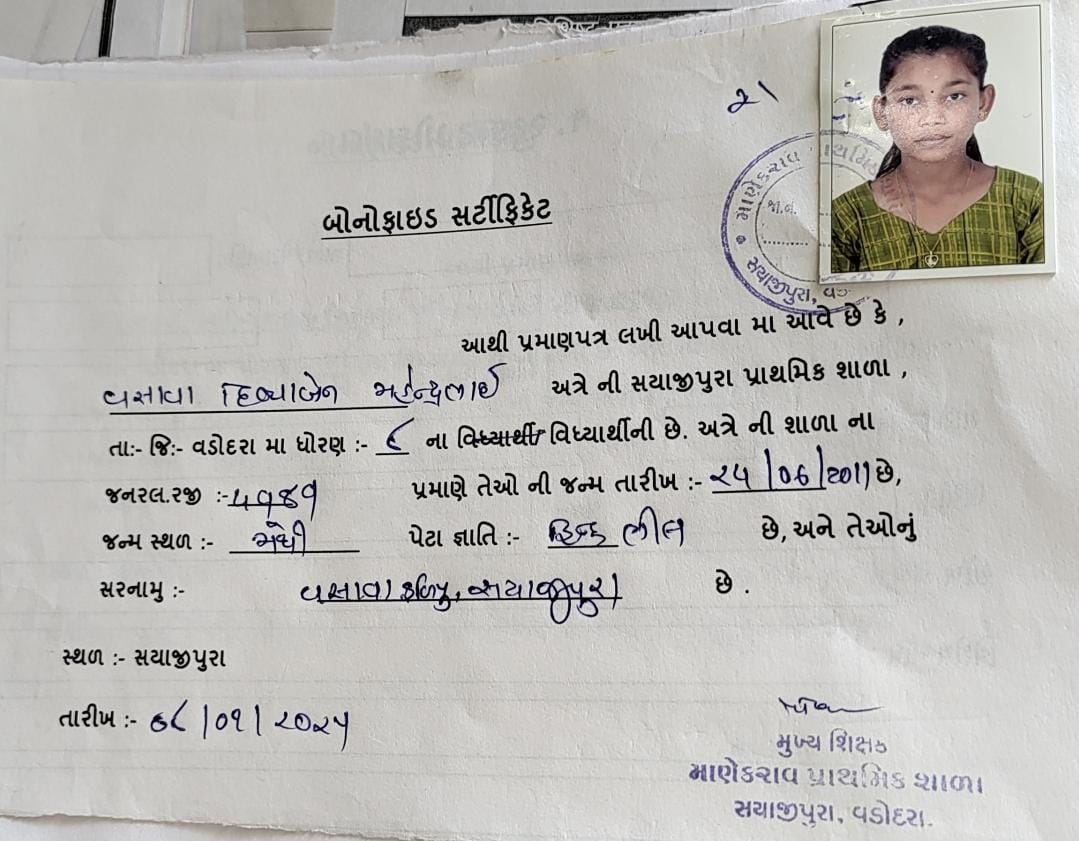 ૨૧
માણેકરાવ પ્રાથમિક
સયાજીપુરા, વડ
બોનોફાઇડ સર્ટીફિકેટ
આથી પ્રમાણપત્ર લખી આપવા મા આવે છે કે ,
વસાવા દિવ્યાબેન મહેન્દ્રભાઈ અત્રે ની સયાજીપુરા પ્રાથમિક શાળા ,
તા:- જિ:- વડોદરા મા ધોરણ :- ૮ ના વિધ્યાર્થી વિધ્યાર્થીની છે. અત્રે ની શાળા ના
જનરલ.રજી :- ૫૧૪૧ પ્રમાણે તેઓ ની જન્મ તારીખ :- ૨૫/૦૬/૨૦૧૧ છે,
જન્મ સ્થળ :- પેટા જ્ઞાતિ :- હિન્દુ ભીલ છે, અને તેઓનું
સરનામુ :- વસાવા ફળિયુ, સયાજીપુરા છે .
સ્થળ :- સયાજીપુરા
તારીખ :- ૦૮/૦૧/૨૦૨૫
મુખ્ય શિક્ષક
માણેકરાવ પ્રાથમિક શાળા
સયાજીપુરા, વડોદરા.